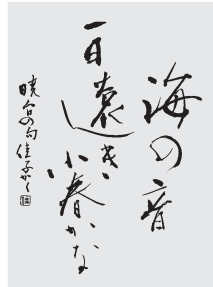 海の音
一日遠き小春かな
暁台の句佳子かく